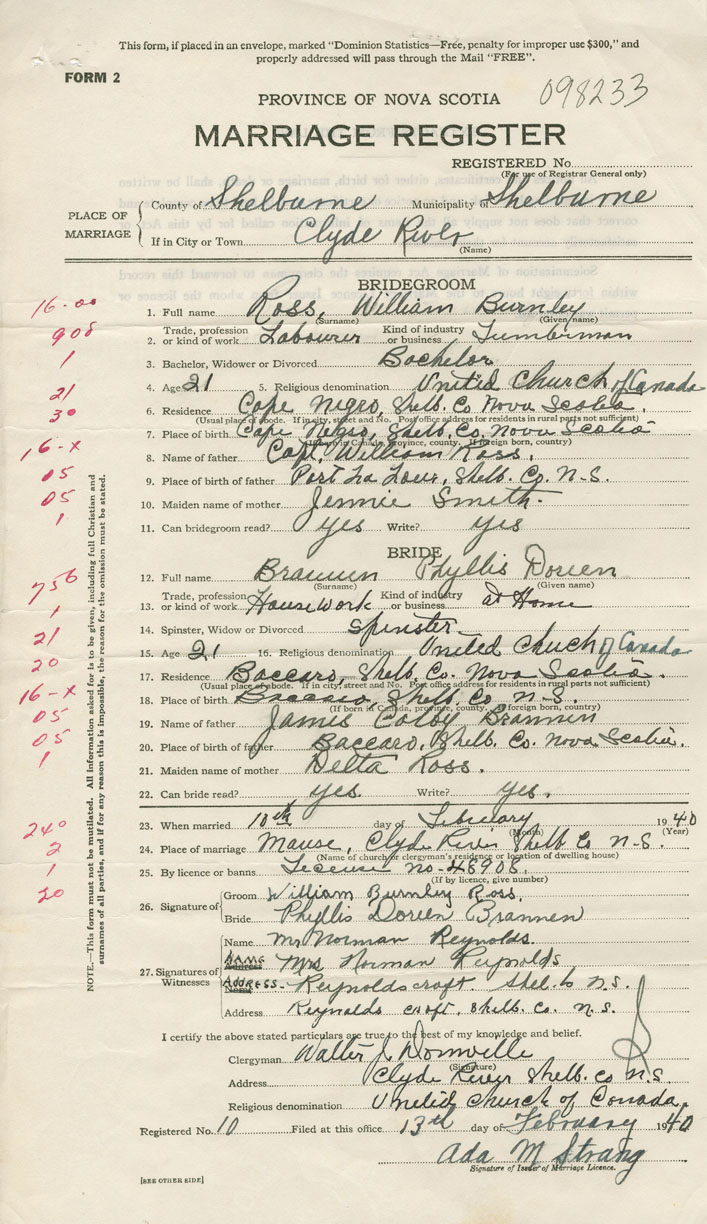 This form, if placed in an envelope, marked "Dominion Statistics—Free, penalty for improper use $300," and
properly addressed will pass through the Mail "FREE".
FORM 2
PROVINCE OF NOVA SCOTIA 098233
MARRIAGE REGISTER
REGISTERED No.
(For use of Registrar General only)
PLACE OF MARRIAGE
County of Shelburne Municipality of Shelburne
If in City or Town Clyde River
(Name)
BRIDEGROOM
16-00
1. Full name Ross, William Burnley
(Surname) (Given name)
908
2. Trade, profession or kind of work Labourer Kind of industry or business Lumberman
1
3. Bachelor, Widower or Divorced Bachelor
21
4. Age 21 5. Religious denomination United Church of Canada
30
6. Residence Cape Negro, Shelb. Co Nova Scotia.
(Usual place of abode. If in city, street and No. Post office address for residents in rural parts not sufficient)
16-x
7. Place of birth Cape Negro, Shelb. Co. Nova Scotia
(If born in Canada, province, county. If foreign born, country)
8. Name of father Capt. William Ross.
05
9. Place of birth of father Port La Tour, Shelb. Co. N-S.
05
10. Maiden name of mother Jennie Smith.
1
11. Can bridegroom read? yes Write? yes
BRIDE
756
12. Full name Brannen Phyllis Dorien
(Surname) (Given name)
1
13. Trade, profession or kind of work Housework Kind of industry or business at Home
21
14. Spinster, Widow or Divorced Spinster.
20
15. Age 21 16. Religious denomination United Chuch of Canada
17. Residence Baccaro, Shelb. Co. Nova Scotia.
(Usual place of abode. If in city, street and No. Post office address for residents in rural parts not sufficient)
16-x
18. Place of birth Baccaro, Shelb. Co N-S.
(If born in Canada, province, county. If foreign born, country)
05
19. Name of father James Colby Brannen
05
20. Place of birth of father Baccaro, Shelb. Co. Nova Scotia.
1
21. Maiden name of mother Delta Ross.
22. Can bride read? yes. Write? yes.
240
23. When married 10th day of February 1940
(Month) (Year)
2
24. Place of marriage Manse, Clyde River Shelb Co N-S.
(Name of church or clergyman's residence or location of dwelling house)
1
25. By licence or banns License no-46906.
(If by licence, give number)
20
26. Signature of
Groom William Burnley Ross.
Bride Phyllis Dorien Brannen
27. Signatures of Witnesses
Name Mr Norman Reynolds.
NAME Address Mrs Norman Reynolds
ADDRESS- Name Reynoldscroft Shel. Co N.S.
Address Reynolds croft, Shelb. Co. N.S.
I certify the above stated particulars are true to the best of my knowledge and belief.
Clergyman Walter J. Domville
(Signature)
Address Clyde River Shelb. Co N.S
Religious denomination United Church of Canada.
Registered No. 10 Filed at this office 13th day of February 1940
Ada M Strang
Signature of Issuer of Marriage Licence.
[SEE OTHER SIDE]
NOTE.—This form must not be mutilated. All information asked for is to be given, including full Christian and
surnames of all parties, and if for any reason this is impossible, the reason for the omission must be stated.